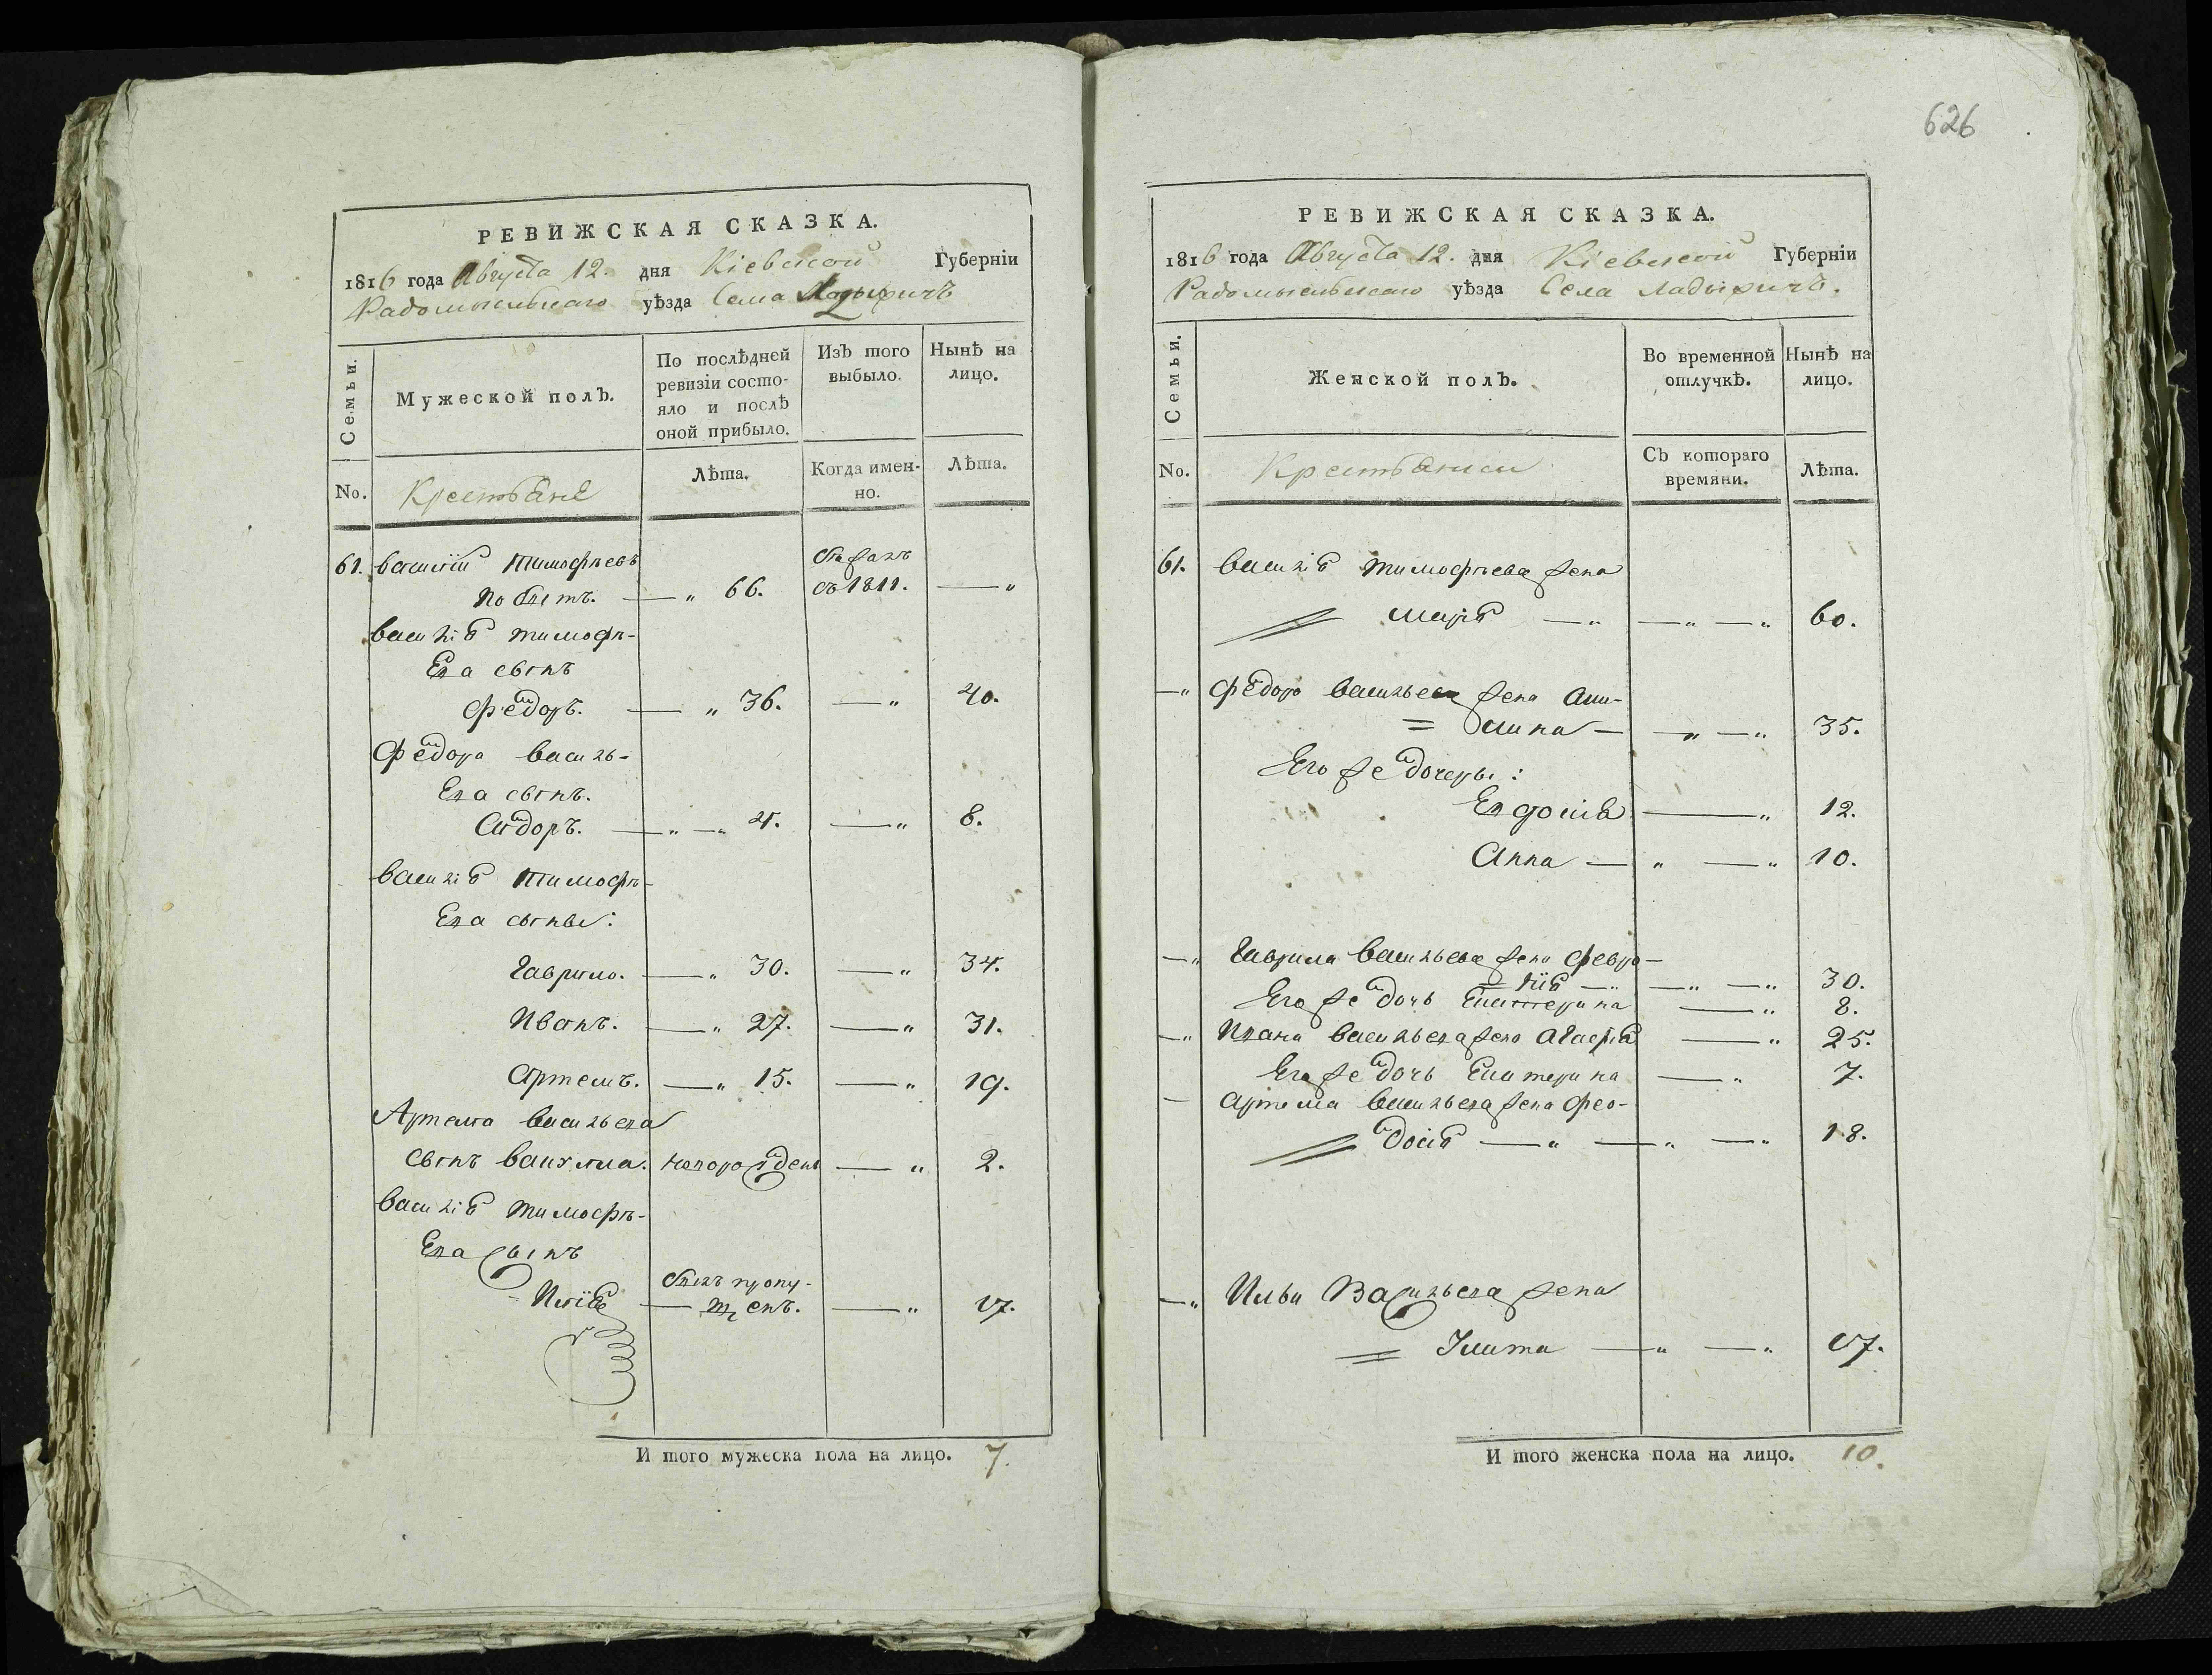 626
РЕВИЖСКАЯ СКАЗКА.
1816 года Августа 12. дня Кіевской Губерніи
Радомысльскаго уѣзда Села
Семьи.
Мужеской полъ.
По послѣдней
ревизіи состо-
яло и послѣ
оной прибыло.
Изъ того
выбыло.
Нынѣ на
лицо.
No.
Крестьяне
Лѣта.
Когда имен-
но.
Лѣта.
61. василій тимофѣевъ
— „ 66. съ 1811. — „
василія тимофѣ-
Ева сынъ
Федоръ. — „ 36. — „ 40.
Федора василь-
Ева сынъ.
Сидоръ. — „ — „ 4. — „ 8.
василія тимофѣ-
Ева сыны:
Гаврило. — „ 30. — „ 34.
Иванъ. — „ 27. — „ 31.
Артемъ. — „ 15. — „ 19.
Артема васильева
сынъ новорожденъ — „ 2.
василія тимофѣ-
Ева сынъ
Илія — былъ пропу-
щенъ. — „ 17.
И того мужеска пола на лицо. 7.
РЕВИЖСКАЯ СКАЗКА.
1816 года Августа 12. дня Кіевской Губерніи
Радомысльскаго уѣзда Села Ладыжичъ.
Семьи.
Женской полъ.
Во временной
отлучкѣ.
Нынѣ на
лицо.
No.
Крестьянки
Съ котораго
времяни.
Лѣта.
61. василія тимофѣева жена
марія — „ — „ — „ 60.
— „ Федора васильева жена
= — — „ — „ 35.
Его же дочеры:
Евдокія — „ 12.
Анна — „ — „ 10.
— „ Гаврила васильева жена Февро-
= нія — „ — „ — „ 30.
Его же дочь Екатерина — „ 8.
— „ Ивана васильева жена Агафія — „ 25.
Его же дочь Екатерина — „ 7.
— Артема васильева жена Фео-
досія — „ — „ — „ 18.
— „ Ильи Васильева жена
= Улита — „ — „ 17.
И того женска пола на лицо. 10.